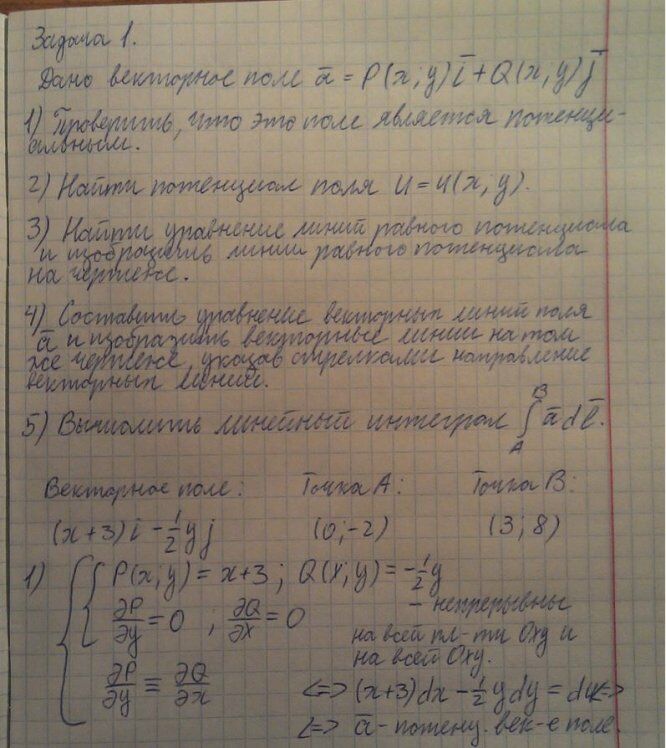 Задача 1.
Дано векторное поле a̅ = P(x;y)i̅ + Q(x,y)j̅
1) Проверить, что это поле является потенци-
альным.
2) Найти потенциал поля u = u(x;y).
3) Найти уравнение линий равного потенциала
и изобразить линии равного потенциала
на чертеже.
4) Составить уравнение векторных линий поля
a̅ и изобразить векторные линии на том
же чертеже, указав стрелками направление
векторных линий.
5) Вычислить линейный интеграл ∫_A^B a̅ dl̅.
Векторное поле: Точка A: Точка B:
(x+3)i - ½yj (0;-2) (3;8)
1) P(x;y) = x+3; Q(x;y) = -½y
∂P/∂y = 0 ; ∂Q/∂x = 0 - непрерывны
на всей пл-ти Oxy и
на всей Oxy.
∂P/∂y ≡ ∂Q/∂x <=> (x+3)dx - ½ydy = du <=>
<=> a̅ - потенц. век-е поле.